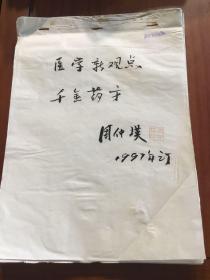 医学新观点
千金药方
周仲瑛
1997年订